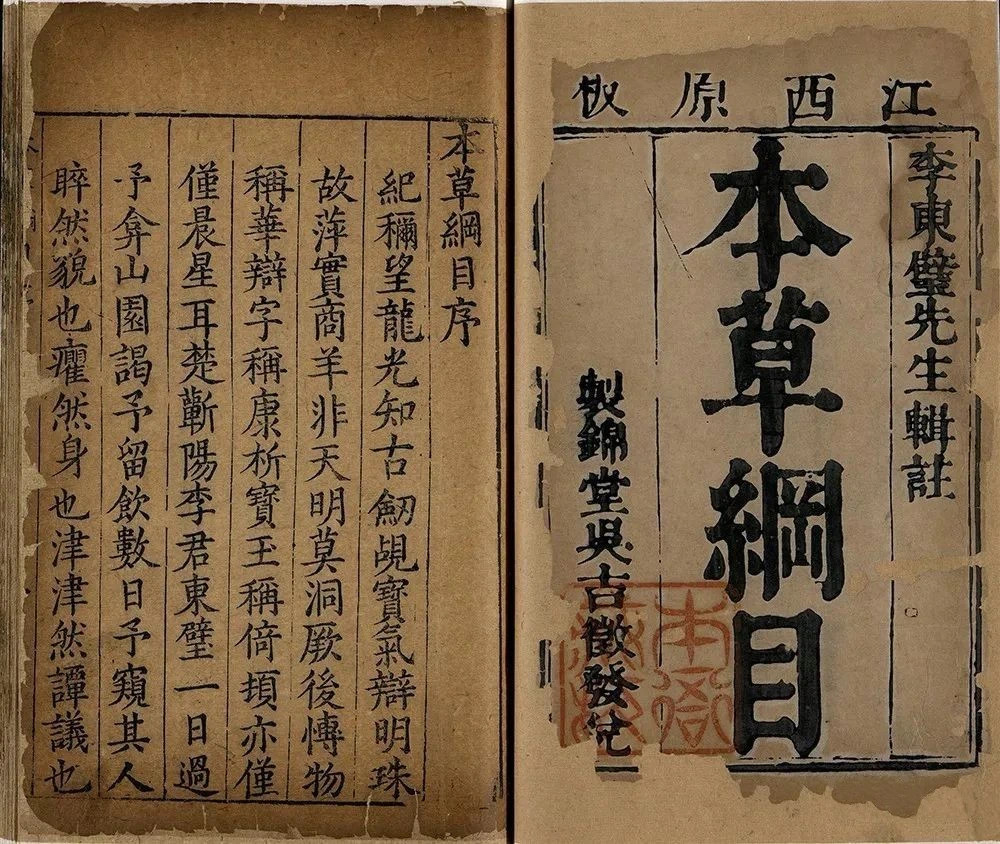 江西原板
李東璧先生輯註
本草綱目
製錦堂吳古徵發兌
本衙藏板
本草綱目序
紀稱望龍光知古劒覘寶氣辯明珠
故萍實商羊非天明莫洞厥後慱物
稱華辯字稱康析寶玉稱倚頓亦僅
僅晨星耳楚蘄陽李君東璧一日過
予弇山園謁予留飲數日予窺其人
睟然貌也癯然身也津津然譚議也